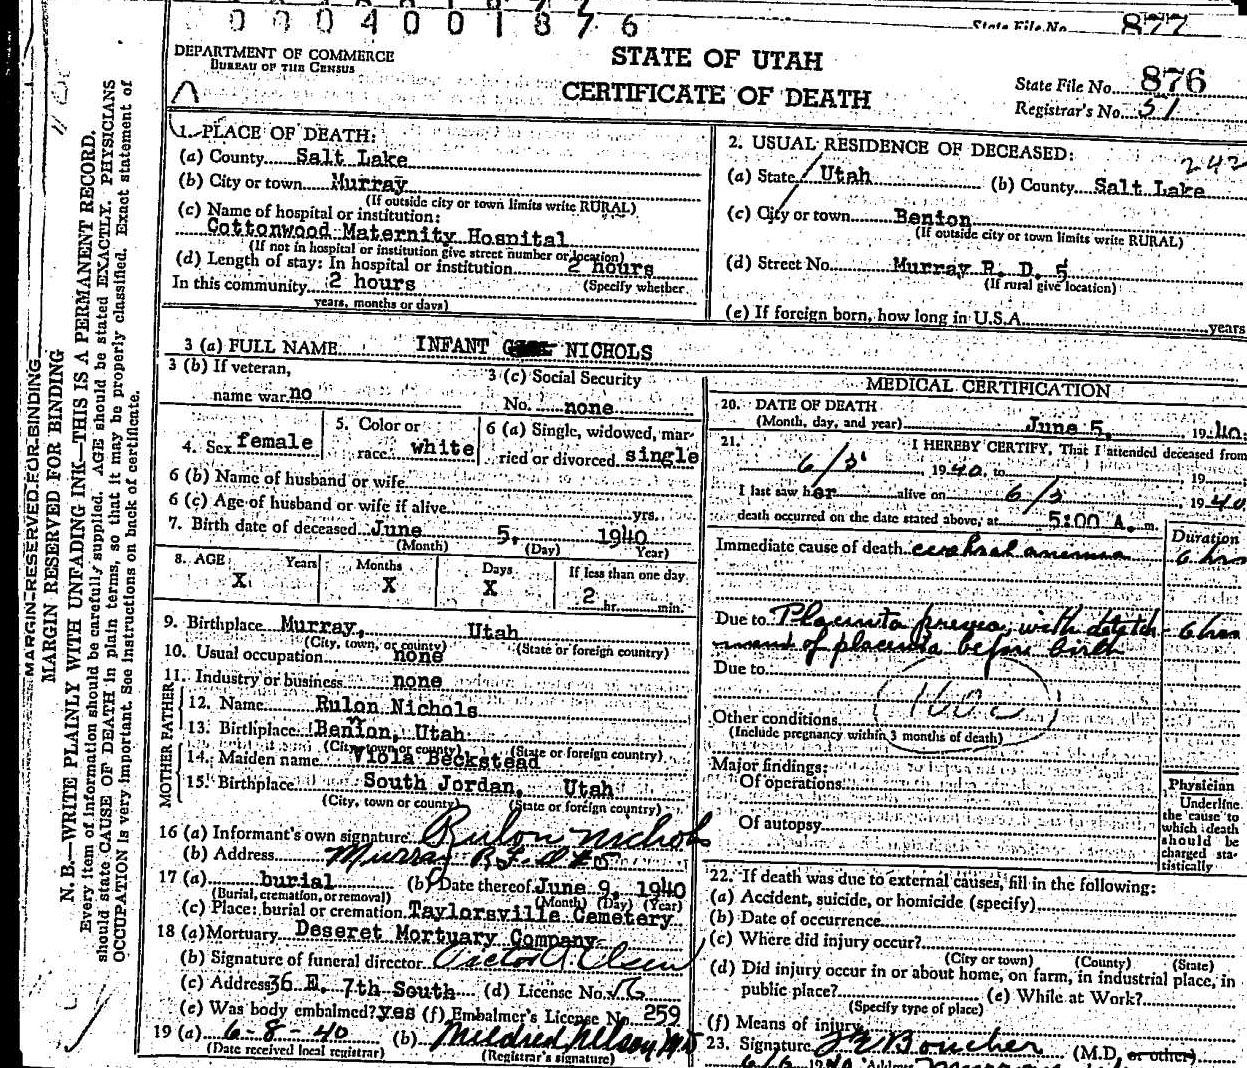 0 0 0 4 0 0 1 8 7 6
State File No. 877
DEPARTMENT OF COMMERCE
BUREAU OF THE CENSUS
STATE OF UTAH
CERTIFICATE OF DEATH
State File No. 876
Registrar's No. 51
MARGIN RESERVED FOR BINDING
MARGIN RESERVED FOR BINDING
N. B.—WRITE PLAINLY WITH UNFADING INK—THIS IS A PERMANENT RECORD.
Every item of information should be carefully supplied. AGE should be stated EXACTLY. PHYSICIANS
should state CAUSE OF DEATH in plain terms, so that it may be properly classified. Exact statement of
OCCUPATION is very important. See instructions on back of certificate.
1. PLACE OF DEATH:
(a) County Salt Lake
(b) City or town Murray
(If outside city or town limits write RURAL)
(c) Name of hospital or institution:
Cottonwood Maternity Hospital
(If not in hospital or institution give street number or location)
(d) Length of stay: In hospital or institution 2 hours
In this community 2 hours (Specify whether
years, months or days)
2. USUAL RESIDENCE OF DECEASED: 242
(a) State Utah (b) County Salt Lake
(c) City or town Benion
(If outside city or town limits write RURAL)
(d) Street No. Murray R. D. 5
(If rural give location)
(e) If foreign born, how long in U.S.A. years
3 (a) FULL NAME INFANT NICHOLS
3 (b) If veteran,
name war no
3 (c) Social Security
No. none
4. Sex female
5. Color or
race white
6 (a) Single, widowed, mar-
ried or divorced single
6 (b) Name of husband or wife
6 (c) Age of husband or wife if alive yrs.
7. Birth date of deceased June 5, 1940
(Month) (Day) Year)
8. AGE Years Months Days If less than one day
X X X 2 hr. min.
9. Birthplace Murray, Utah
(City, town, or county) (State or foreign country)
10. Usual occupation none
11. Industry or business none
FATHER
12. Name Rulon Nichols
13. Birthplace Benion, Utah
(City, town or county) (State or foreign country)
MOTHER
14. Maiden name Viola Beckstead
15. Birthplace South Jordan, Utah
(City, town or county) (State or foreign country)
16 (a) Informant's own signature Rulon Nichols
(b) Address Murray R.F.D #5
17 (a) burial (b) Date thereof June 9, 1940
(Burial, cremation, or removal) (Month) (Day) (Year)
(c) Place: burial or cremation Taylorsville Cemetery
18 (a) Mortuary Deseret Mortuary Company
(b) Signature of funeral director
(c) Address 36 E. 7th South (d) License No.
(e) Was body embalmed? yes (f) Embalmer's License No. 259
19 (a) 6-8-40 (b) Mildred Nelson
(Date received local registrar) (Registrar's signature)
MEDICAL CERTIFICATION
20. DATE OF DEATH
(Month, day, and year) June 5, 1940
21. I HEREBY CERTIFY, That I attended deceased from
6/5 1940, to 19
I last saw her alive on 6/5 1940
death occurred on the date stated above, at 5:00 A. m.
Duration
Immediate cause of death cerebral anemia 6 hrs
Due to Placenta previa, with detatch- 6 hrs
ment of placenta before birth
Due to
160c
Other conditions
(Include pregnancy within 3 months of death)
Major findings:
Of operations
Of autopsy
Physician
Underline
the cause to
which death
should be
charged sta-
tistically
22. If death was due to external causes, fill in the following:
(a) Accident, suicide, or homicide (specify)
(b) Date of occurrence
(c) Where did injury occur?
(City or town) (County) (State)
(d) Did injury occur in or about home, on farm, in industrial place, in
public place? (e) While at Work?
(Specify type of place)
(f) Means of injury
23. Signature Boucher (M.D. or other)